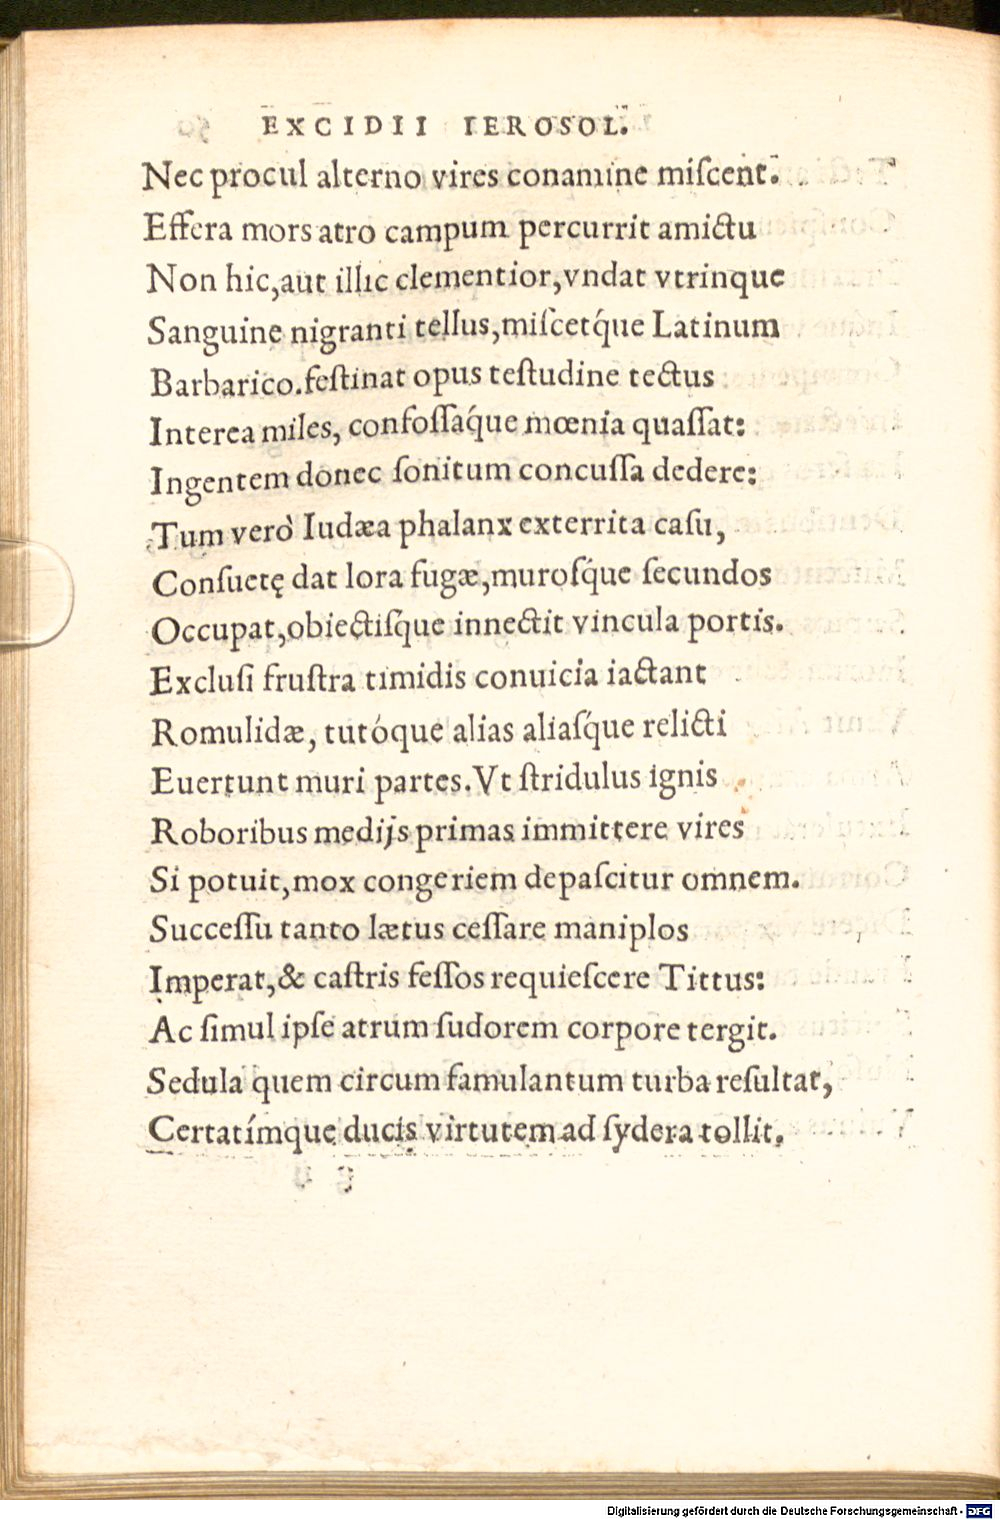 EXCIDII IEROSOL.
Nec procul alterno vires conamine miſcent.
Effera mors atro campum percurrit amictu
Non hic,aut illic clementior,vndat vtrinque
Sanguine nigranti tellus,miſcetq́ue Latinum
Barbarico.feſtinat opus teſtudine tectus
Interea miles, confoſſaq́ue mœnia quaſſat:
Ingentem donec ſonitum concuſſa dedere:
Tum verò Iudæa phalanx exterrita caſu,
Conſuetę dat lora fugæ,muroſq́ue ſecundos
Occupat,obiectiſque innectit vincula portis.
Excluſi fruſtra timidis conuicia iactant
Romulidæ, tutóque alias aliaſq́ue relicti
Euertunt muri partes.Vt ſtridulus ignis
Roboribus medijs primas immittere vires
Si potuit,mox congeriem depaſcitur omnem.
Succeſſu tanto lætus ceſſare maniplos
Imperat,& caſtris feſſos requieſcere Tittus:
Ac ſimul ipſe atrum ſudorem corpore tergit.
Sedula quem circum famulantum turba reſultat,
Certatímque ducis virtutem ad ſydera tollit.
Digitalisierung gefördert durch die Deutsche Forschungsgemeinschaft - DFG